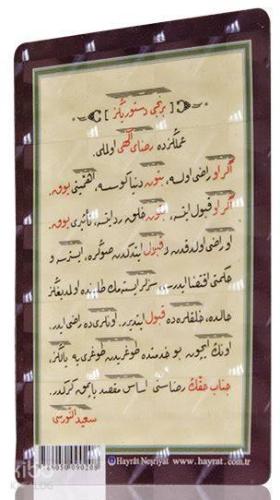 [ برنجی دستوریگز ]
عملگزده رضای الٓهی اولملی.
اگر او راضی اولسه، بتون دنیا كوسسه، اهمیتی یوق.
اگر او قبول ایتسه، بتون خلق رد ایتسه، تأثیری یوق.
او راضی اولدقدن و قبول ایتدكدن صوڭره، ایسترسه و
حكمتی اقتضا ایدرسه، سزلر ایسته مك طلبنده اولمدیغڭز
حالده، خلقلره ده قبول ایتدیرر، اونلری ده راضی ایدر.
اونك ایچون، بو خدمتده طوغریدن طوغری یه یالڭز،
جناب حقڭ رضاسنی اساس مقصد یاپمق گركدر.
سعید النورسی
Hayrât Neşriyat www.hayrat.com.tr